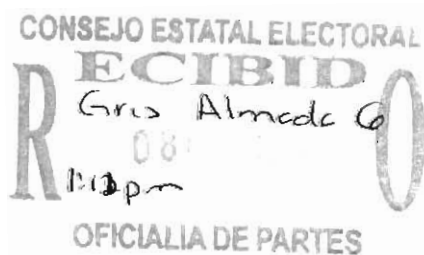 CONSEJO ESTATAL ELECTORAL
RECIBIDO
Gris Almada G
08
pm
OFICIALIA DE PARTES